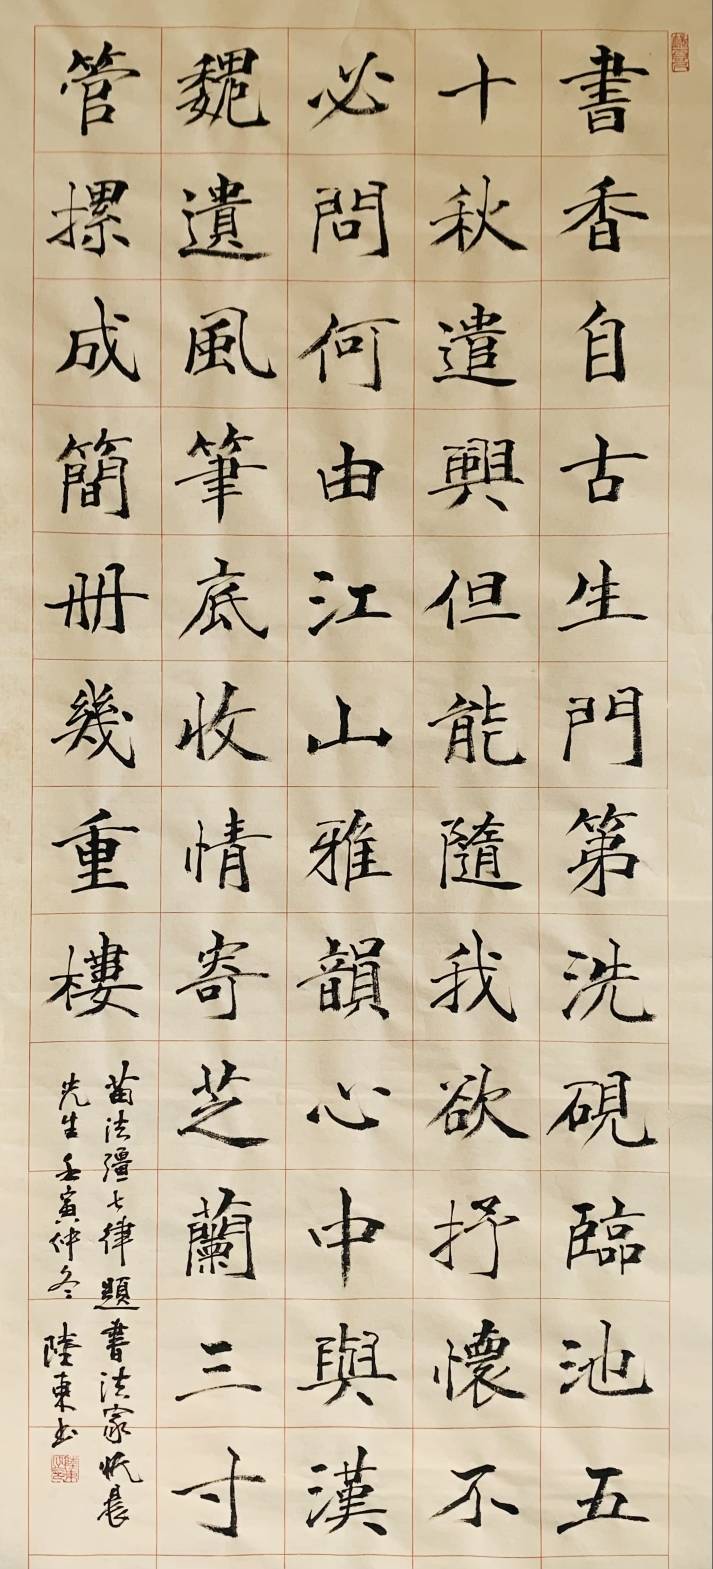 書香自古生門第洗硯臨池五
十秋遣興但能隨我欲抒懷不
必問何由江山雅韻心中與漢
魏遺風筆底收情寄芝蘭三寸
管摞成簡册幾重樓
苗法彊七律題書法家
先生壬寅仲冬 陸東书